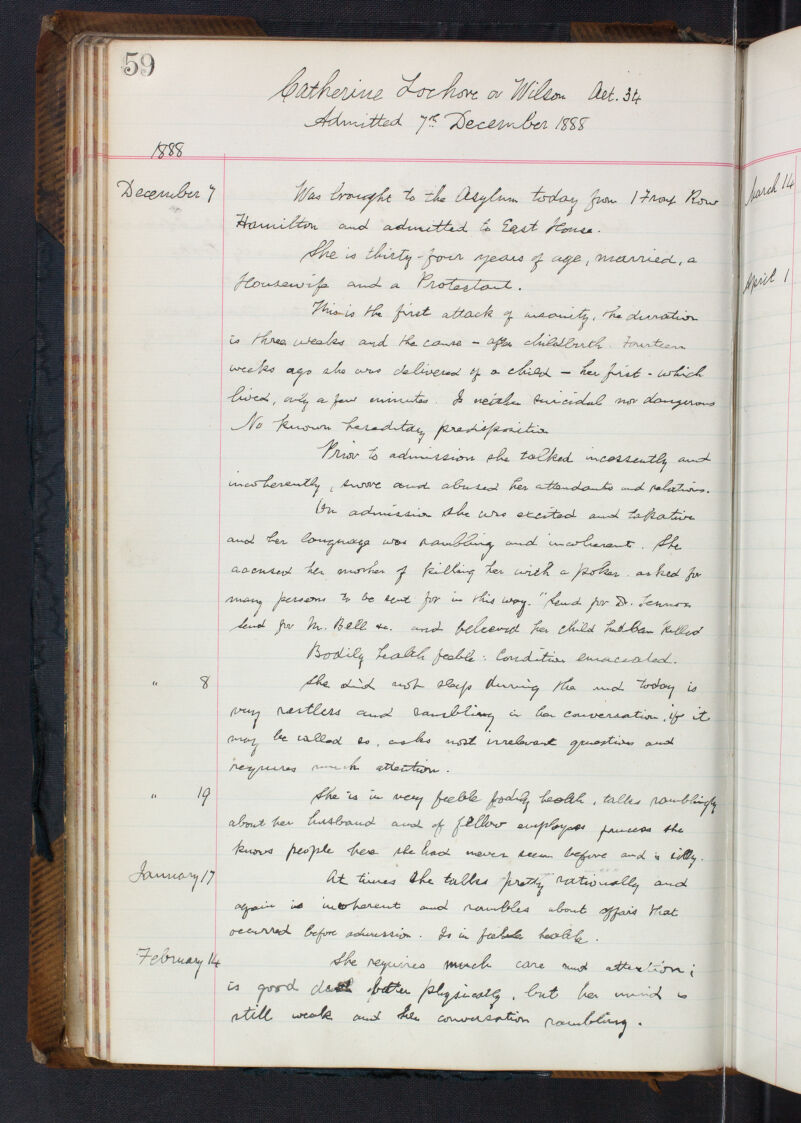 59
Catherine Lochore or Wilson Aet. 34
Admitted 7th December 1888
1888
December 7 Was brought to the Asylum today from 1 Front Row
Hamilton and admitted to East House.
She is thirty-four years of age, married, a
Housewife and a Protestant.
This is the first attack of insanity, the duration
is three weeks and the cause - after childbirth. Fourteen
weeks ago she was delivered of a child - her first - which
lived, only a few minutes. Is neither suicidal nor dangerous
No known hereditary predisposition
Prior to admission she talked incessently and
incoherently, swore and abused her attendants and relations.
On admission she was excited and talkative
and her language was rambling and incoherent. She
accused her mother of killing her with a poker. asked for
many persons to be sent for in this way. "Send for Dr. Lennox
send for Mr. Bell &c. and believed her child had been killed
Bodily health feeble: Condition emaciated.
" 8 She did not sleep during the and today is
very restless and rambling in her conversation, if it
may be called so, asks most irrelevant questions and
requires much attention.
" 19 She is in very feeble bodily health, talks ramblingly
about her husband and of fellow employees she
knows people here she had never seen before and is silly.
January 17 At times she talks pretty rationally and
again is incoherent and rambles about affairs that
occurred before admission. Is in feeble health.
February 14 She requires much care and attention;
is good deal better physically, but her mind is
still weak and her conversation rambling.
March 14
April 1